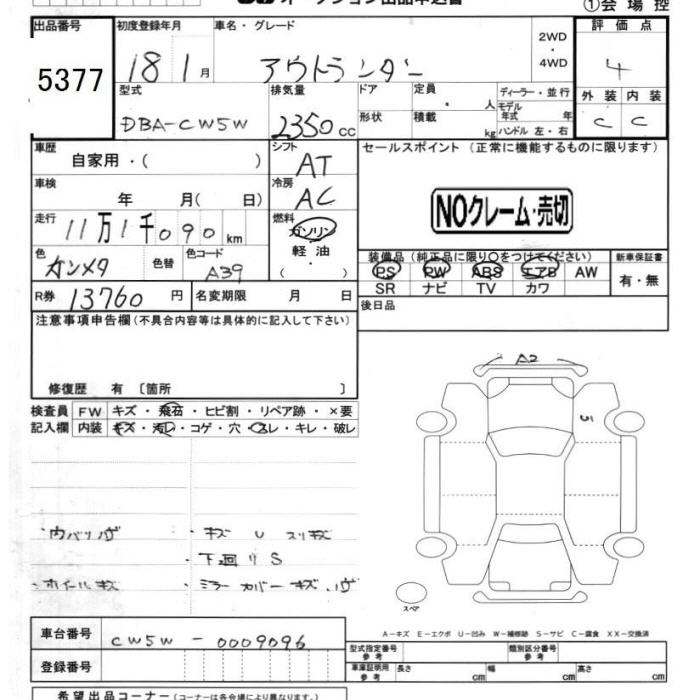 オークション出品申込書
①会場控
出品番号 初度登録年月 車名・グレード 評価点
5377 18 1月 アウトランダー 2WD ・ 4WD 4
型式 排気量 ドア 定員 ・ 人 ディーラー・並行 外装 内装
DBA-CW5W 2350cc 形状 積載 kg モデル年式 年 ハンドル 左・右 C C
車歴 自家用・( ) シフト AT セールスポイント (正常に機能するものに限ります)
車検 年 月( 日) 冷房 AC
NOクレーム・売切
走行 11万1千090km 燃料 ガソリン
軽油
・
( )
色 ガンメタ 色替 色コード A39
装備品 (純正品に限り○をつけてください) 新車保証書
PS PW ABS エアB AW 有・無
SR ナビ TV カワ
R券 13760円 名変期限 月 日 後日品
注意事項申告欄(不具合内容等は具体的に記入して下さい)
修復歴 有 〔箇所 〕
検査員 FW キズ・飛石・ヒビ割・リペア跡・×要
記入欄 内装 キズ・汚レ・コゲ・穴・スレ・キレ・破レ
A2
・キズ U スリキズ
・下廻りS
・ホイールキズ ・ミラーカバーキズ
スペア
A-キズ E-エクボ U-凹み W-補修跡 S-サビ C-腐食 XX-交換済
車台番号 CW5W-0009096
登録番号
型式指定番号 参考 類別区分番号 参考
車庫証明用 参考 長さ cm 幅 cm 高さ cm
希望出品コーナー (コーナーは各会場により異なります。)